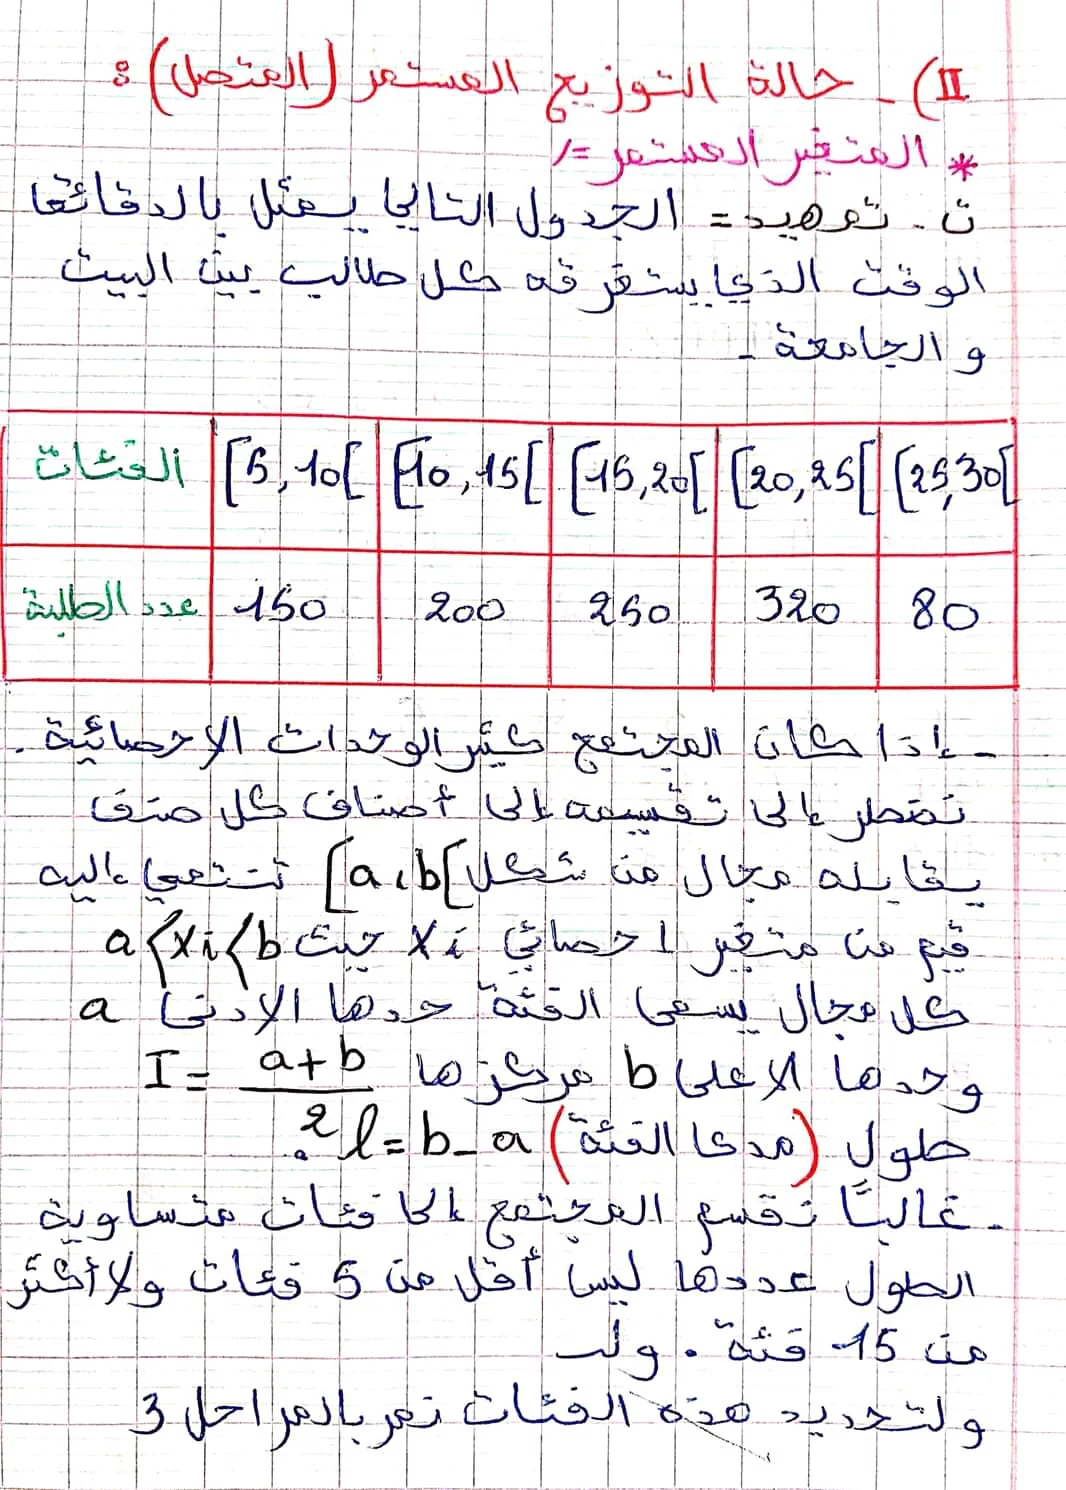 II) - حالة التوزيع المستمر (المتصل) :
* المتغير المستمر =/
ت. تمهيد = الجدول التالي يمثل بالدقائق
الوقت الذي يستغرقه كل طالب بين البيت
و الجامعة -
الفئات [5,10[ [10,15[ [15,20[ [20,25[ [25,30[
عدد الطلبة 150 200 250 320 80
- إذا كان المجتمع كثير الوحدات الإحصائية .
نضطر إلى تقسيمه إلى أصناف كل صنف
يقابله مجال من شكل [a,b[ تنتمي إليه
قيم من متغير احصائي xi حيث a<xi<b
كل مجال يسمى الفئة حدها الادنى a
وحدها الاعلى b مركزها I = a+b / 2
طول (مدى الفئة) l = b - a .
- غالبًا نقسم المجتمع إلى فئات متساوية
الطول عددها ليس أقل من 5 فئات ولا أكثر
من 15 فئة . ولت
ولتحديد هذه الفئات نمر بالمراحل 3